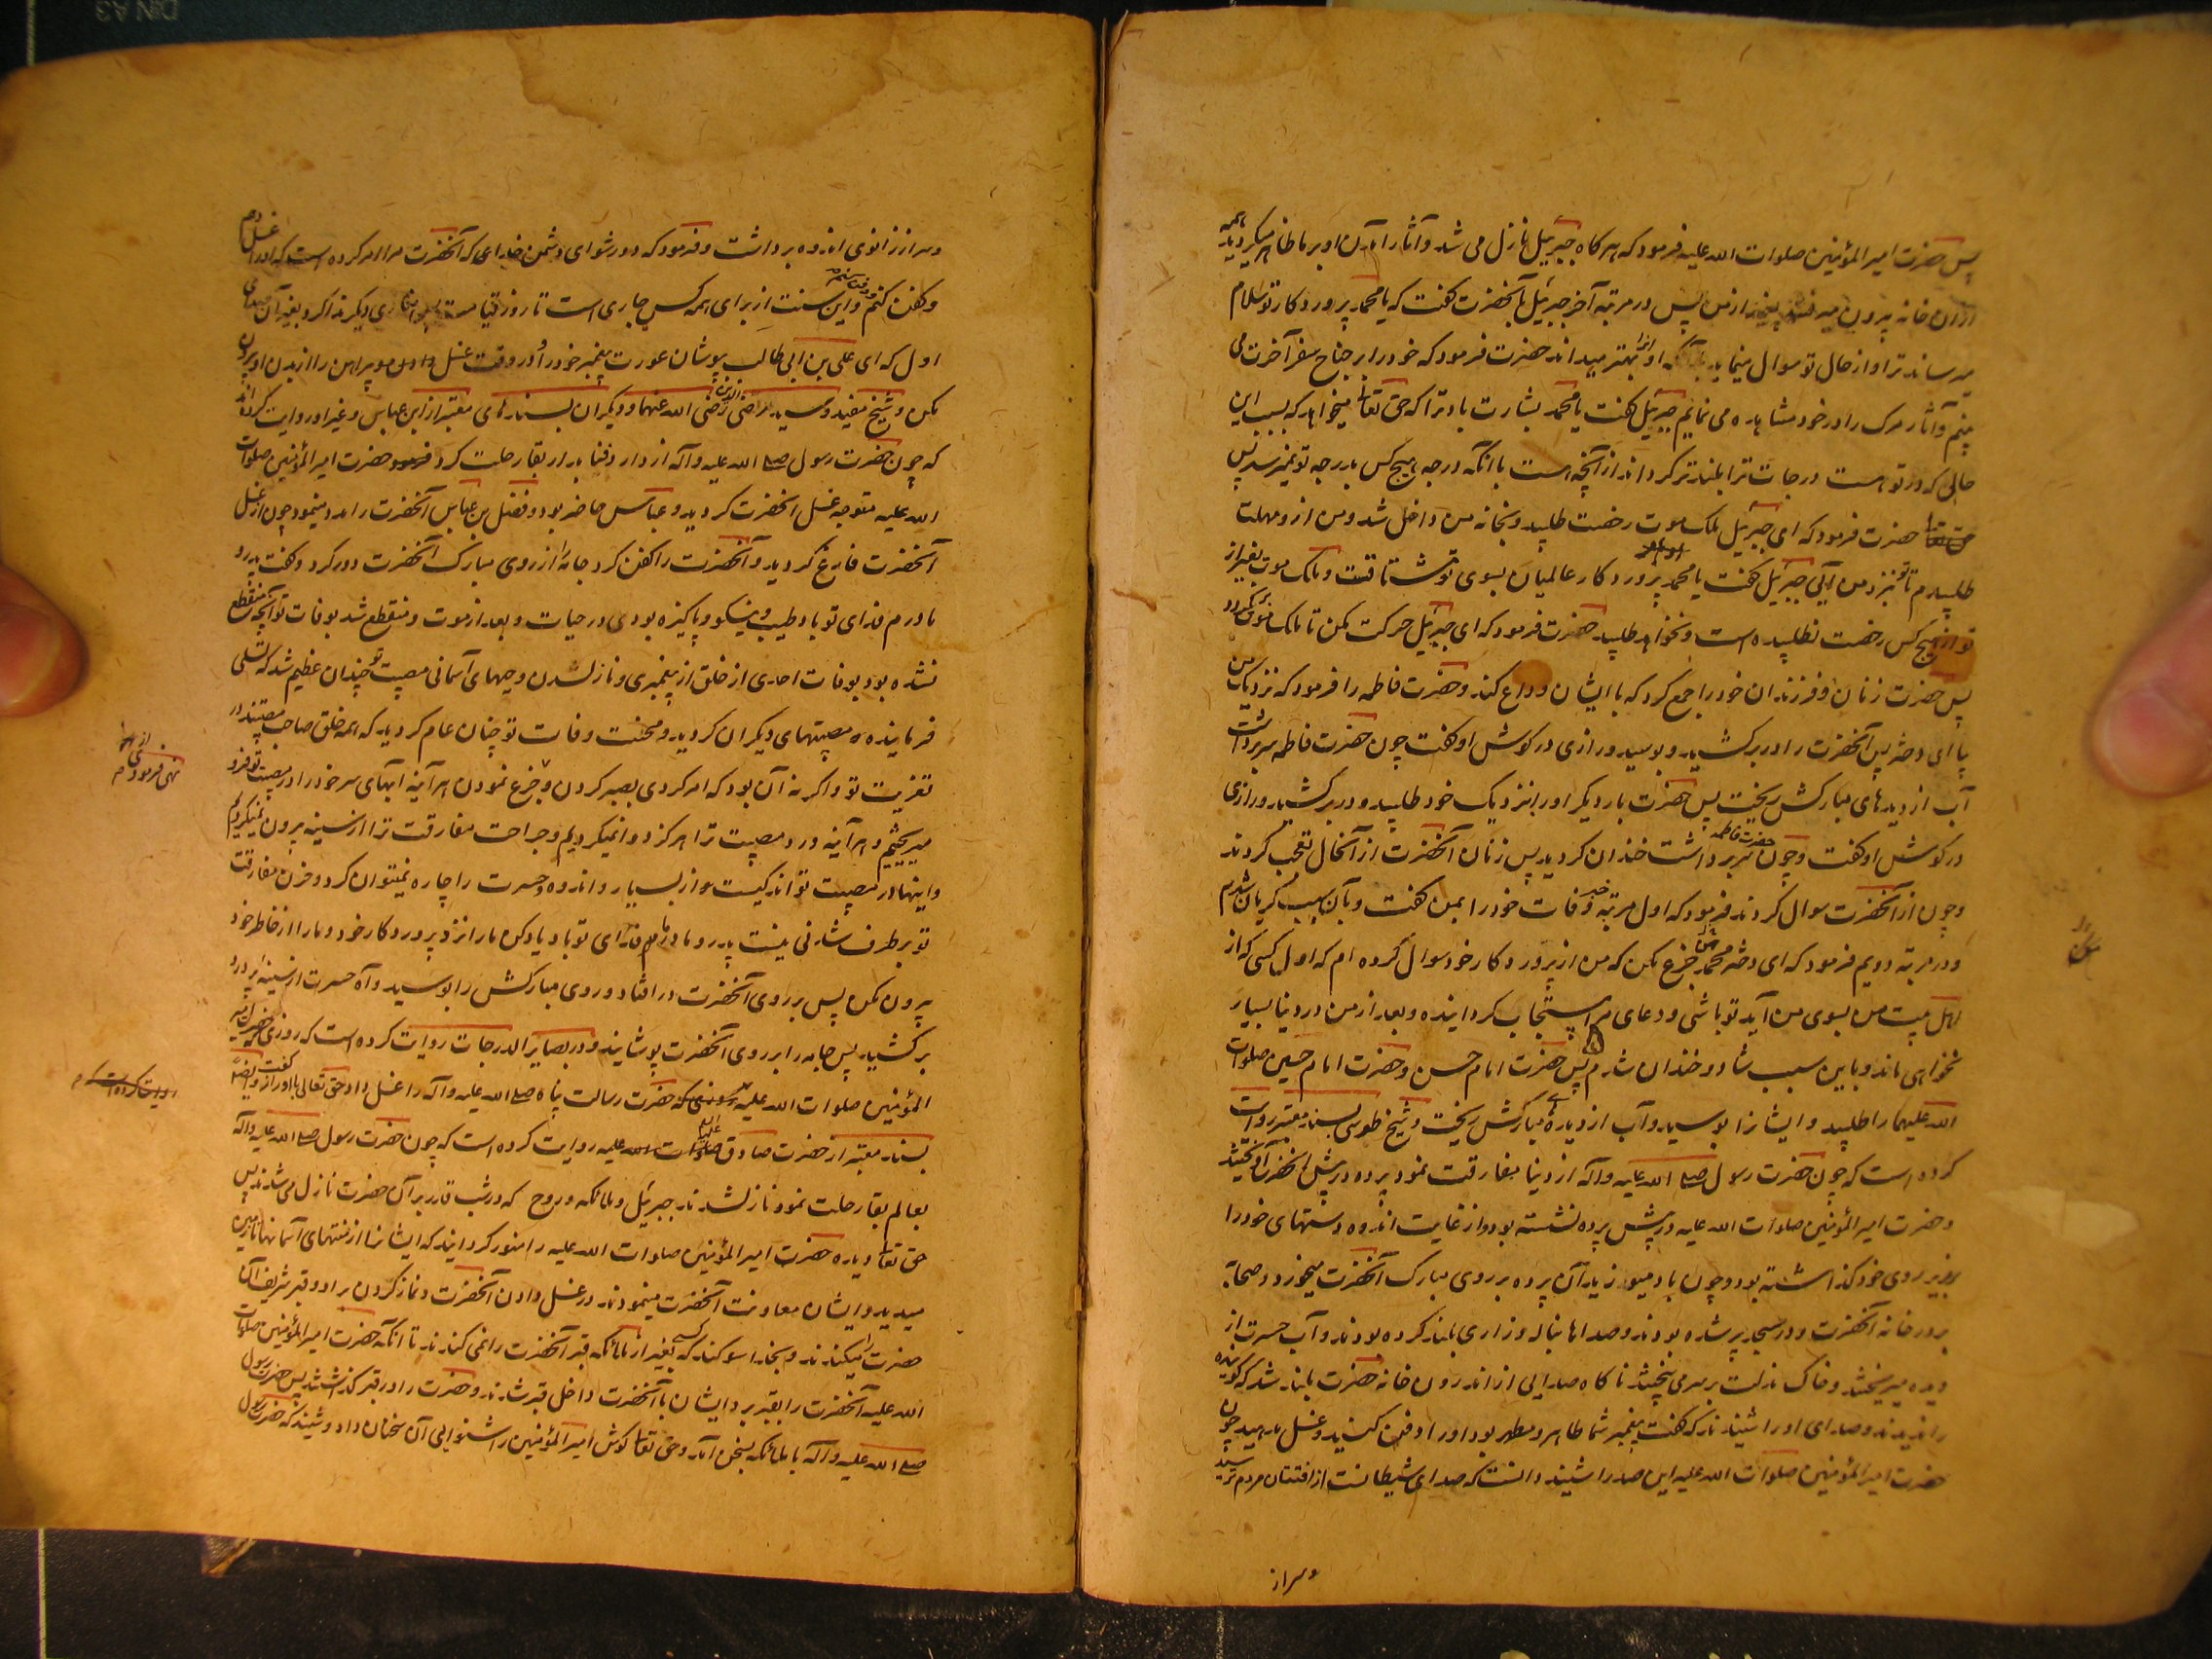 پس حضرت امیر المؤمنین صلوات الله علیه فرمود که هرگاه جبرئیل نازل می شد و آثار آمدن او بر ما ظاهر میگردید همه
ازان خانه بیرون میرفتند بغیر از من پس در مرتبه آخر جبرئیل بآنحضرت گفت که یا محمد پروردگار تو سلام
میرساند ترا و از حال تو سوال مینماید با آنکه او بهتر میداند حضرت فرمود که خود را بر جناح سفر آخرت می
بینم و آثار مرک را در خود مشاهده می نمایم جبرئیل گفت یا محمد بشارت باد ترا که حق تعالی میخواهد که بسبب این
حالی که در تو هست درجات ترا بلند تر گرداند از آنچه هست با آنکه درجه هیچ کس بدرجه تو نمیرسد پس
حضرت فرمود که ای جبرئیل ملک موت رخصت طلبید و بخانه من داخل شد و من از و مهلت
طلبیدم تا تو بنزد من آیی جبرئیل گفت یا محمد پروردگار عالمیان بسوی تو مشتاقست و ملک موت بغیر از
تو از هیچ کس رخصت نطلبیده است و نخواهد طلبید حضرت فرمود که ای جبرئیل حرکت مکن تا ملک موت برگردد
پس حضرت زنان و فرزندان خود را جمع کرد که با ایشان وداع کند و حضرت فاطمه را فرمود که نزدیک من
بیا ای دختر پس آنحضرت را در بر کشید و بوسید و رازی در گوش او گفت چون حضرت فاطمه سر برداشت
آب از دیدهای مبارکش ریخت پس حضرت بار دیگر او را بنزدیک خود طلبید و در بر کشید و رازی
در گوش او گفت و چون حضرت فاطمه سر برداشت خندان گردید پس زنان آنحضرت از آنحال تعجب کردند
و چون از آنحضرت سوال کردند فرمود که اول مرتبه خبر وفات خود را بمن گفت و بآن سبب گریان شدم
و در مرتبه دویم فرمود که ای دختر محمد جزع مکن که من از پروردگار خود سوال کرده ام که اول کسی که از
اهل بیت من بسوی من آید تو باشی و دعای مرا مستجاب گردانیده و بعد از من در دنیا بسیار
نخواهی ماند و باین سبب شاد و خندان شدم پس حضرت امام حسن و حضرت امام حسین صلوات
الله علیهما را طلبید و ایشانرا بوسید و آب از دیدۀ مبارکش ریخت و شیخ طوسی بسند معتبر روایت
کرده است که چون حضرت رسول صلی الله علیه و آله از دنیا مفارقت نمود پرده در پیش آنحضرت آویختند
و حضرت امیر المؤمنین صلوات الله علیه در پیش پرده نشسته بود و از غایت اندوه دستهای خود را
بزیر روی خود گذاشته بود و چون باد میوزید آن پرده بر روی مبارک آنحضرت میخورد و صحابه
بر در خانه آنحضرت و در مسجد پر شده بودند و صداها بناله و زاری بلند کرده بودند و آب حسرت از
دیده میریختند و خاک مذلت بر سر می بیختند ناگاه صدایی از اندرون خانه حضرت بلند شد که گوینده
را ندیدند و صدای او را شنیدند که گفت پیغمبر شما طاهر و مطهر بود او را دفن کنید و غسل مدهید چون
حضرت امیر المؤمنین صلوات الله علیه این صدا را شنید دانست که صدای شیطانست از افتتان مردم ترسید
و سر از
و سر از زانوی اندوه برداشت و فرمود که دور شو ای دشمن خدا که آنحضرت مرا امر کرده است که او را غسل دهم
و کفن کنم و دفن کنم و این سنت از برای همه کس جاری است تا روز قیامت پس منادی دیگر ندا کرد بغیر آن صدای
اول که ای علی بن ابی طالب بپوشان عورت پیغمبر خود را در وقت غسل دادن و پیراهن را از بدن او بیرون
مکن و شیخ مفید و سید رضی الدین رضی الله عنهما و دیگران بسندهای معتبر از ابن عباس و غیر او روایت کرده اند
که چون حضرت رسول صلی الله علیه و آله از دار فنا بدار بقا رحلت کرد حضرت امیر المؤمنین صلوات
الله علیه متوجه غسل آنحضرت گردید و عباس حاضر بود و فضل بن عباس آنحضرت را مدد مینمود چون از غسل
آنحضرت فارغ گردید و آنحضرت را کفن کرد جامه را از روی مبارک آنحضرت دور کرد و گفت پدر و
مادرم فدای تو باد طیب و نیکو و پاکیزه بودی در حیات و بعد از موت و منقطع شد بوفات تو آنچه منقطع
نشده بود بوفات احدی از خلق از پیغمبری و نازل شدن وحیهای آسمانی مصیبت تو چندان عظیم شد که تسلی
فرماینده مصیبتهای دیگران گردید و محنت وفات تو چنان عام گردید که همه خلق صاحب مصیبتند در
تعزیت تو و اگر نه آن بود که امر کردی بصبر کردن و نهی فرمودی از جزع نمودن هر آینه آبهای سر خود را در مصیبت تو فرو
میریختیم و هر آینه درد مصیبت ترا هرگز دوا نمیکردیم و جراحت مفارقت ترا از سینه بیرون نمیکردیم
و اینها در مصیبت تو اندکیست از بسیار و اندوه و حسرت را چاره نمیتوان کرد و حزن مفارقت
تو برطرف شدنی نیست پدر و مادرم فدای تو باد یاد کن ما را نزد پروردگار خود و ما را از خاطر خود
بیرون مکن پس بر روی آنحضرت در افتاد و روی مبارکش را بوسید و آه حسرت از سینه پر درد
برکشید پس جامه را بر روی آنحضرت پوشانید و در بصایر الدرجات روایت کرده است که روزی حضرت امیر
المؤمنین صلوات الله علیه که حضرت رسالت پناه صلی الله علیه و آله را غسل داد حق تعالی با او راز گفت و ایضا
بسند معتبر از حضرت صادق علیه السلام روایت کرده است که چون حضرت رسول صلی الله علیه و آله
بعالم بقا رحلت نمود نازل شدند جبرئیل و ملائکه و روح که در شب قدر بر آن حضرت نازل می شدند پس
حق تعالی دیده حضرت امیر المؤمنین صلوات الله علیه را منور گردانید که ایشانرا از منتهای آسمانها تا زمین
میدید و ایشان معاونت آنحضرت مینمودند در غسل دادن آنحضرت و نماز کردن بر او و قبر شریف آن
حضرت را میکندند و بخدا سوگند که کسی بغیر از ملائکه قبر آنحضرت را نمی کندند تا آنکه حضرت امیر المؤمنین صلوات
الله علیه آنحضرت را بقبر برد ایشان با آنحضرت داخل قبر شدند و حضرت را در قبر گذاشتند پس حضرت رسول
صلی الله علیه و آله با ملائکه بسخن آمد و حق تعالی گوش امیر المؤمنین را شنوایی آن سخنان داد و شنید که حضرت رسول